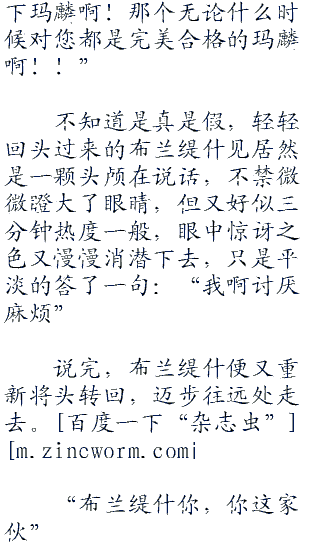 下玛麟啊！那个无论什么时
候对您都是完美合格的玛麟
啊！！”
不知道是真是假，轻轻
回头过来的布兰缇什见居然
是一颗头颅在说话，不禁微
微瞪大了眼睛，但又好似三
分钟热度一般，眼中惊讶之
色又慢慢消潜下去，只是平
淡的答了一句：“我啊讨厌
麻烦”
说完，布兰缇什便又重
新将头转回，迈步往远处走
去。[百度一下“杂志虫”]
[m.zincworm.com|
“布兰缇什你，你这家
伙”